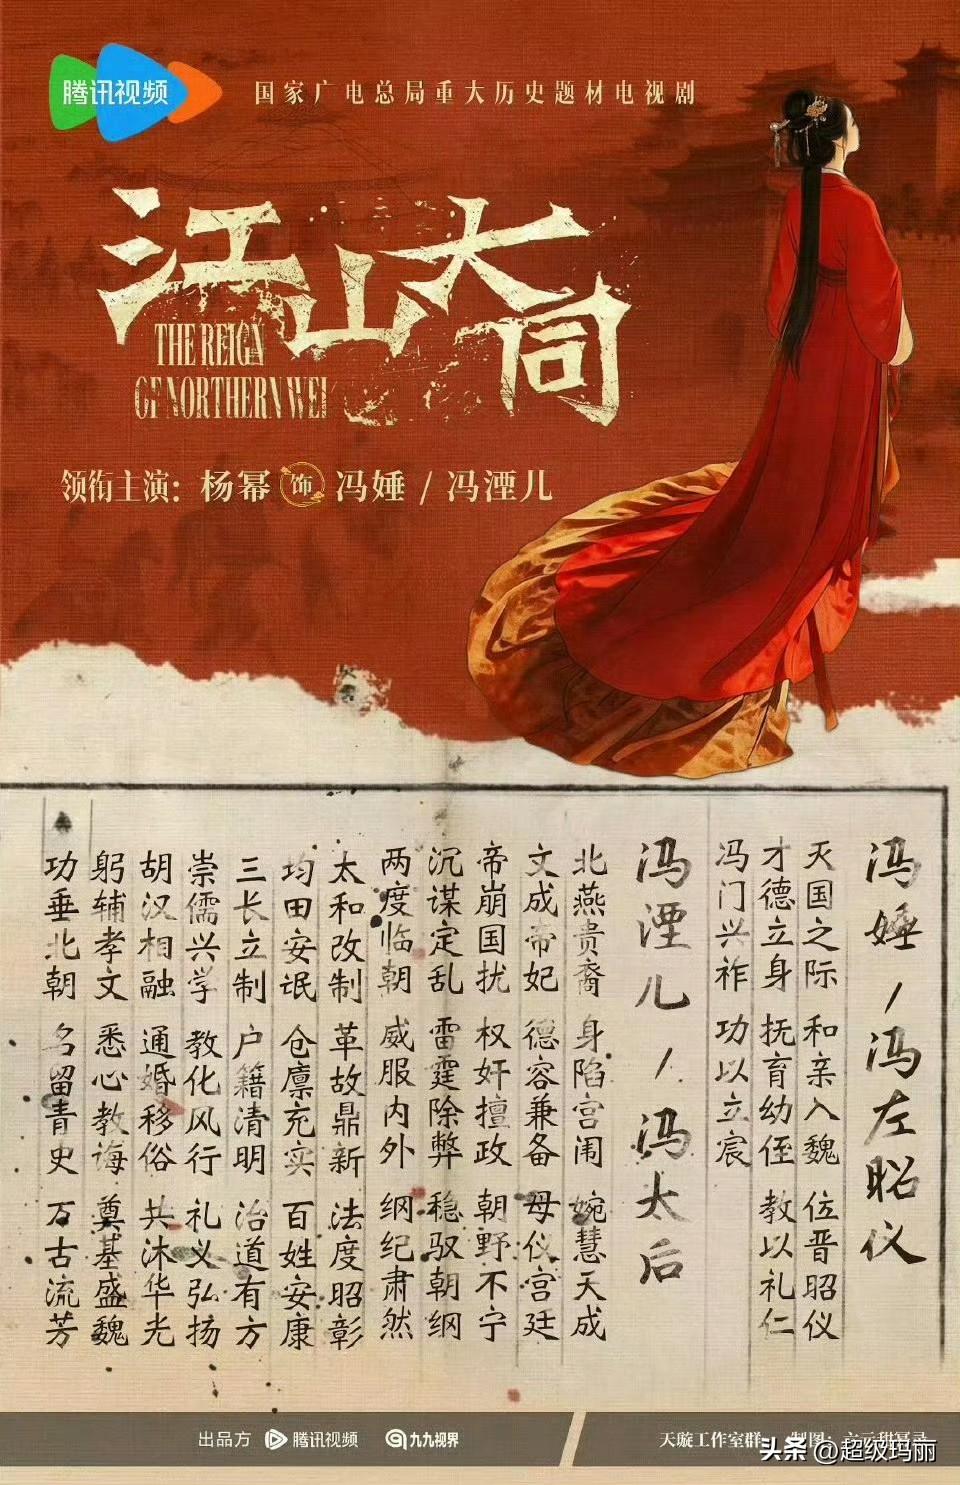 腾讯视频
国家广电总局重大历史题材电视剧
江山大同
THE REIGN
OF NORTHERN WEI
领衔主演：杨幂 饰 冯娷 / 冯湮儿
冯娷 / 冯左昭仪
灭国之际 和亲入魏 位晋昭仪
才德立身 抚育幼侄 教以礼仁
冯门兴祚 功以立宸
冯湮儿 / 冯太后
北燕贵裔 身陷宫闱 婉慧天成
文成帝妃 德容兼备 母仪宫廷
帝崩国扰 权奸擅政 朝野不宁
沉谋定乱 雷霆除弊 稳驭朝纲
两度临朝 威服内外 纲纪肃然
太和改制 革故鼎新 法度昭彰
均田安氓 仓廪充实 百姓安康
三长立制 户籍清明 治道有方
崇儒兴学 教化风行 礼义弘扬
胡汉相融 通婚移俗 共沐华光
躬辅孝文 悉心教诲 奠基盛魏
功垂北朝 名留青史 万古流芳
出品方 腾讯视频 九九视界
天璇工作室群
头条 @超级玛丽